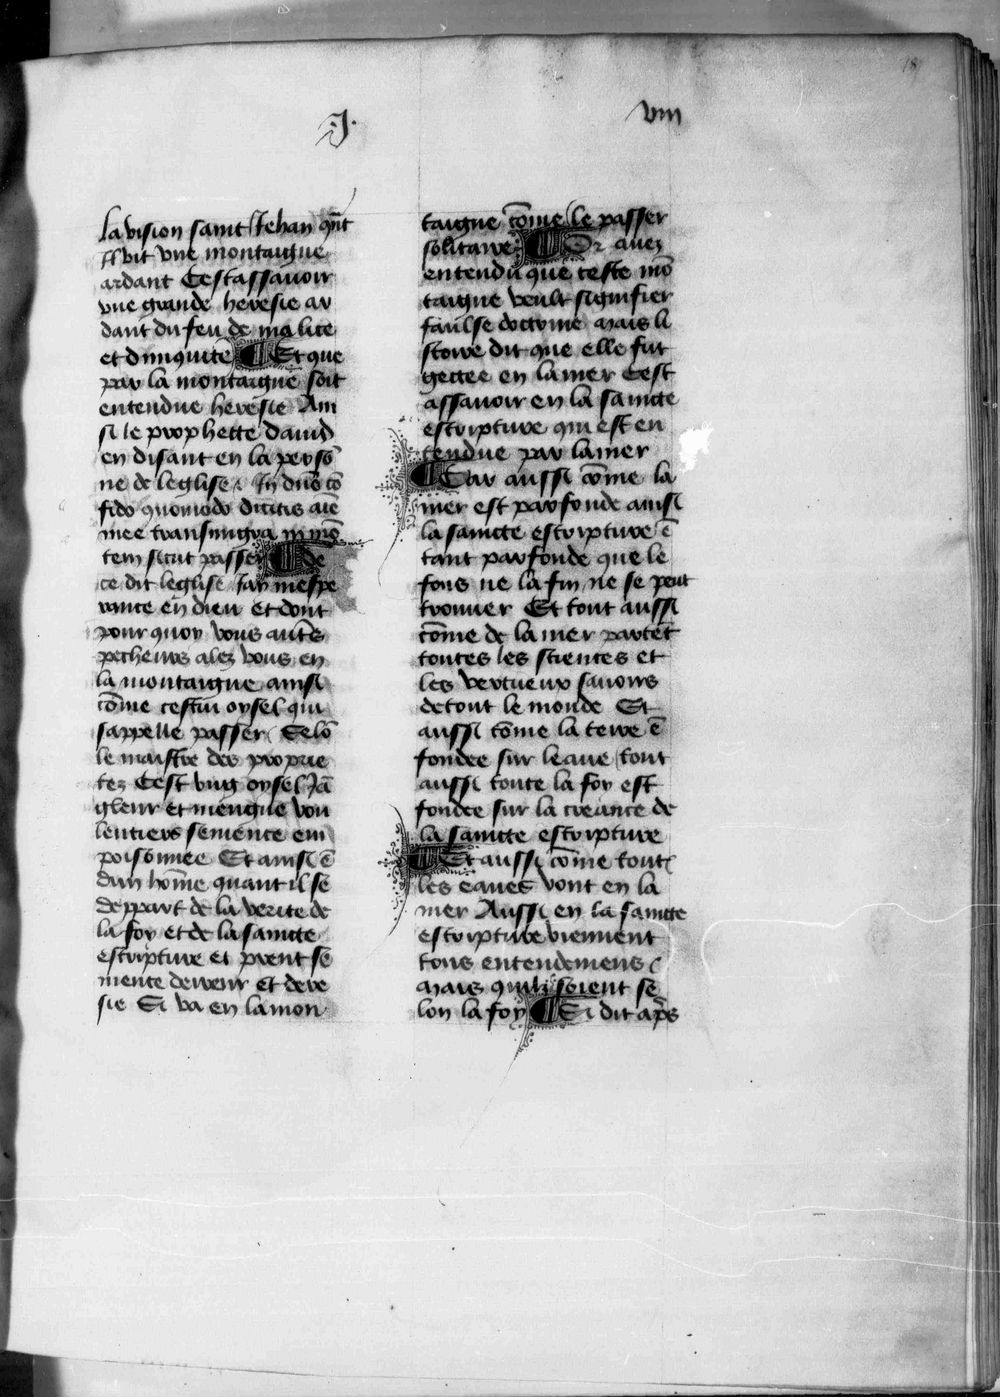 .J. viii
18
la vision saint Jehan qñt
Il vit vne montaigne
ardant Cestassauoir
vne grande heresie ar
dant du feu de malice
et diniquite ¶ Et que
par la montaigne soit
entendue heresie Ain
si le prophette dauid
en disant en la persō
ne de leglise. In dn̄o cō
fido quomodo dicitis aīe
mee transmigra in mō
tem sicut passer ¶ De
ce dit leglise Jay mespe
rance en dieu et dont
pour quoy vous autēs
pecheurs alez vous en
la montaigne ainsi
cōme cestui oysel qui
sappelle passer Selō
le maistre des proprie
tez Cest vng oysel Jā
gleur et mengue vou
lentiers semence em
poisonnee Et ainsi ē
dun hōme quant il se
deppart de la verite de
la foy et de la saincte
escripture et prent se
mence derreur et dere
sie Si va en la mon
taigne cōme le passer
solitaire ¶ Or auez
entendu que ceste mō
taigne veult signifier
faulse doctrine mais li
stoire dit que elle fut
gectee en la mer Cest
assauoir en la saincte
escripture qui est en
tendue par la mer
¶ Car aussi cōme la
mer est parfonde ainsi
la saincte escripture ē
tant parfonde que le
fons ne la fin ne se peut
trouuer Et tout aussi
cōme de la mer partēt
toutes les sciences et
les vertueux sauoirs
de tout le monde Et
aussi cōme la terre ē
fondee sur leaue tout
aussi toute la foy est
fondee sur la creance de
la saincte escripture
¶ Et aussi cōme toutes
les eaues vont en la
mer Aussi en la saincte
escripture viennent
tous entendemens
mais quilz soient se
lon la foy ¶ Si dit ap̄s